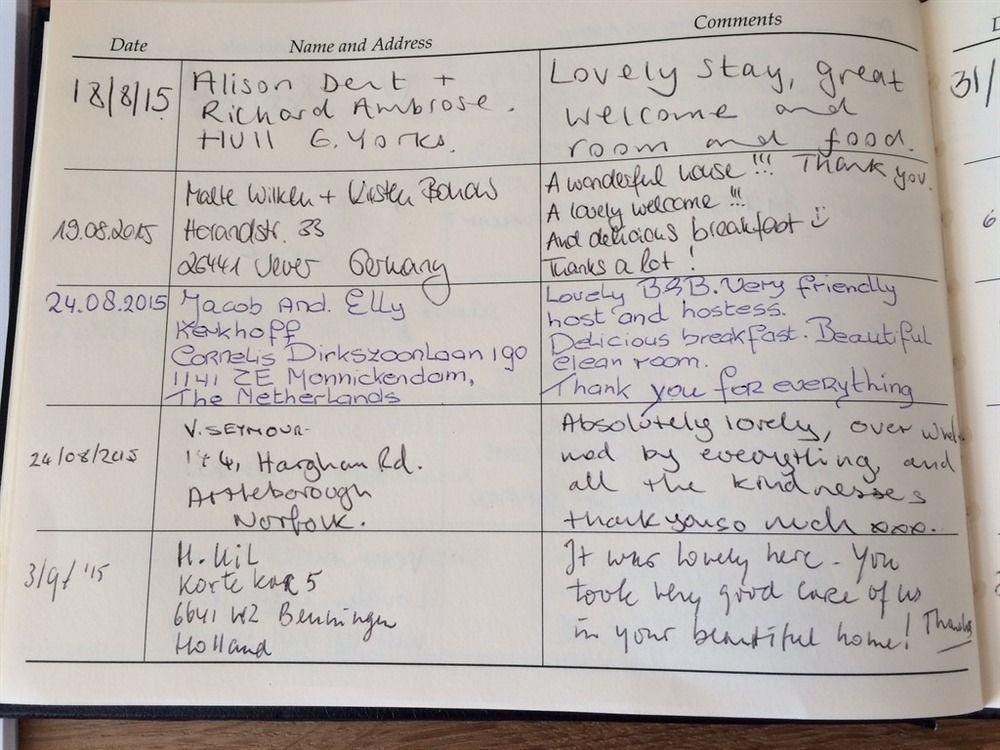 Date Name and Address Comments
18/8/15 Alison Dent + Lovely stay, great
Richard Ambrose. welcome and
Hull E. Yorks. room and food.
Thank you.
Malte Wilken + A wonderful house!!!
19.08.2015 A lovely welcome!!!
33 And delicious breakfast
26441 Jever Germany Thanks a lot!
24.08.2015 Jacob And. Elly Lovely B&B. Very friendly
Kerkhoff host and hostess.
Cornelis Dirkszoonlaan 190 Delicious breakfast. Beautiful
1141 ZE Monnickendam, clean room.
The Netherlands Thank you for everything
V. SEYMOUR Absolutely lovely, over whel-
24/08/2015 Hargham Rd. med by everything, and
Attleborough all the kindnesses
Norfolk. thank you so much xxx.
3/9/'15 It was lovely here. You
Korte 5 took very good care of us
6641 Beuningen in your beautiful home! Thanks
Holland
31/